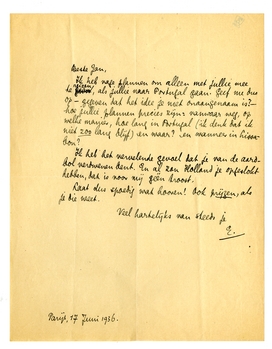 Beste Jan,
Ik heb vage plannen om alleen met jullie mee
te reizen, als jullie naar Portugal gaan. Zeg me dus
op- gegeven dat het idee je niet onaangenaam is? -
hoe jullie plannen precies zijn: vanwaar weg, op
welke manier, hoe lang in Portugal (ik denk dat ik
niet zoo lang blijf) en waar? en wanneer in
Ik heb het vervelende gevoel dat je van de aard-
bol verdwenen bent. En al zou Holland je opgeslokt
hebben, dat is voor mij géén troost.
Laat dus spoedig wat hooren! Ook prijzen, als
je die weet.
Veel hartelijks van steeds je
E.
Parijs, 17 Juni 1936.